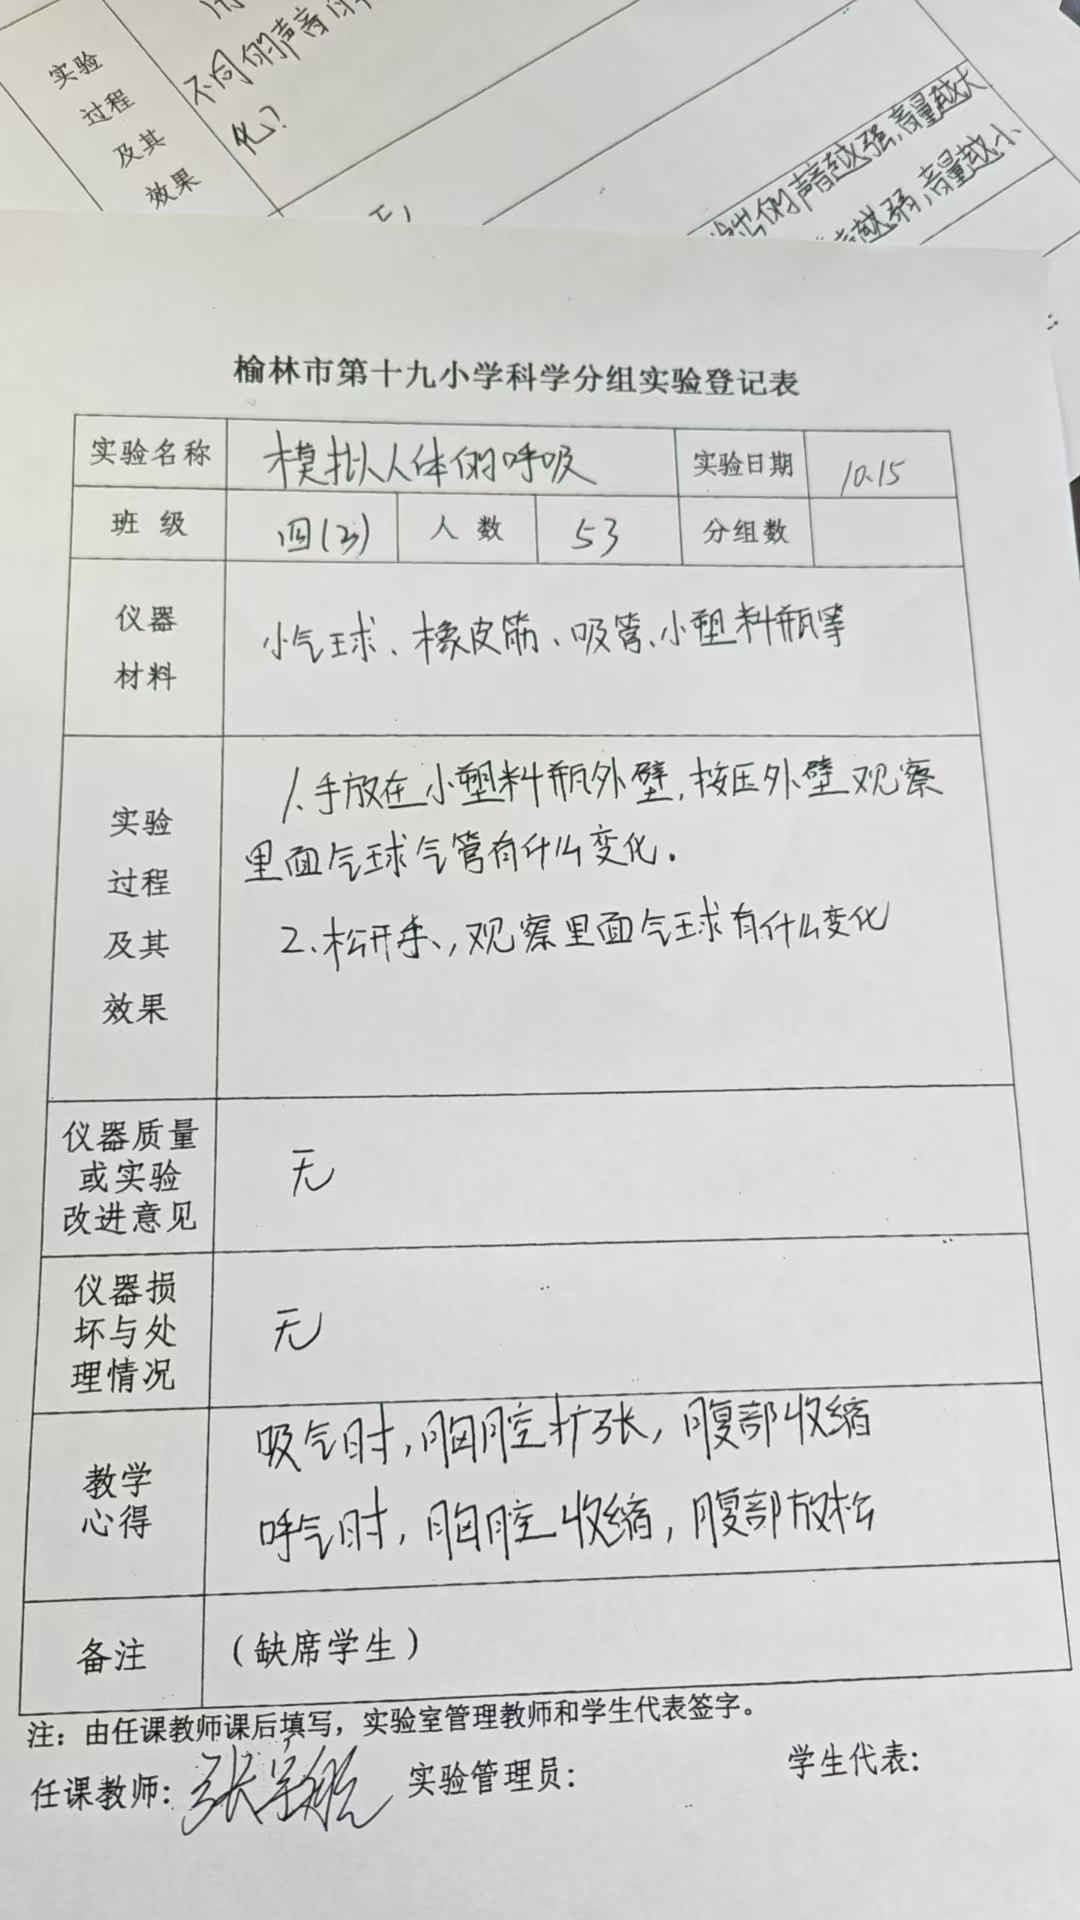 实验
过程
及其
效果
不同的声音
化?
出的声音越强,音量越大
越弱,音量越小
榆林市第十九小学科学分组实验登记表
实验名称 模拟人体的呼吸 实验日期 10.15
班 级 四(3) 人 数 53 分组数
仪器
材料
小气球、橡皮筋、吸管、小塑料瓶等
实验
过程
及其
效果
1.手放在小塑料瓶外壁,按压外壁观察
里面气球气管有什么变化.
2.松开手,观察里面气球有什么变化
仪器质量
或实验
改进意见
无
仪器损
坏与处
理情况
无
教学
心得
吸气时,胸腔扩张,腹部收缩
呼气时,胸腔收缩,腹部放松
备注 (缺席学生)
注:由任课教师课后填写,实验室管理教师和学生代表签字。
任课教师: 实验管理员: 学生代表: